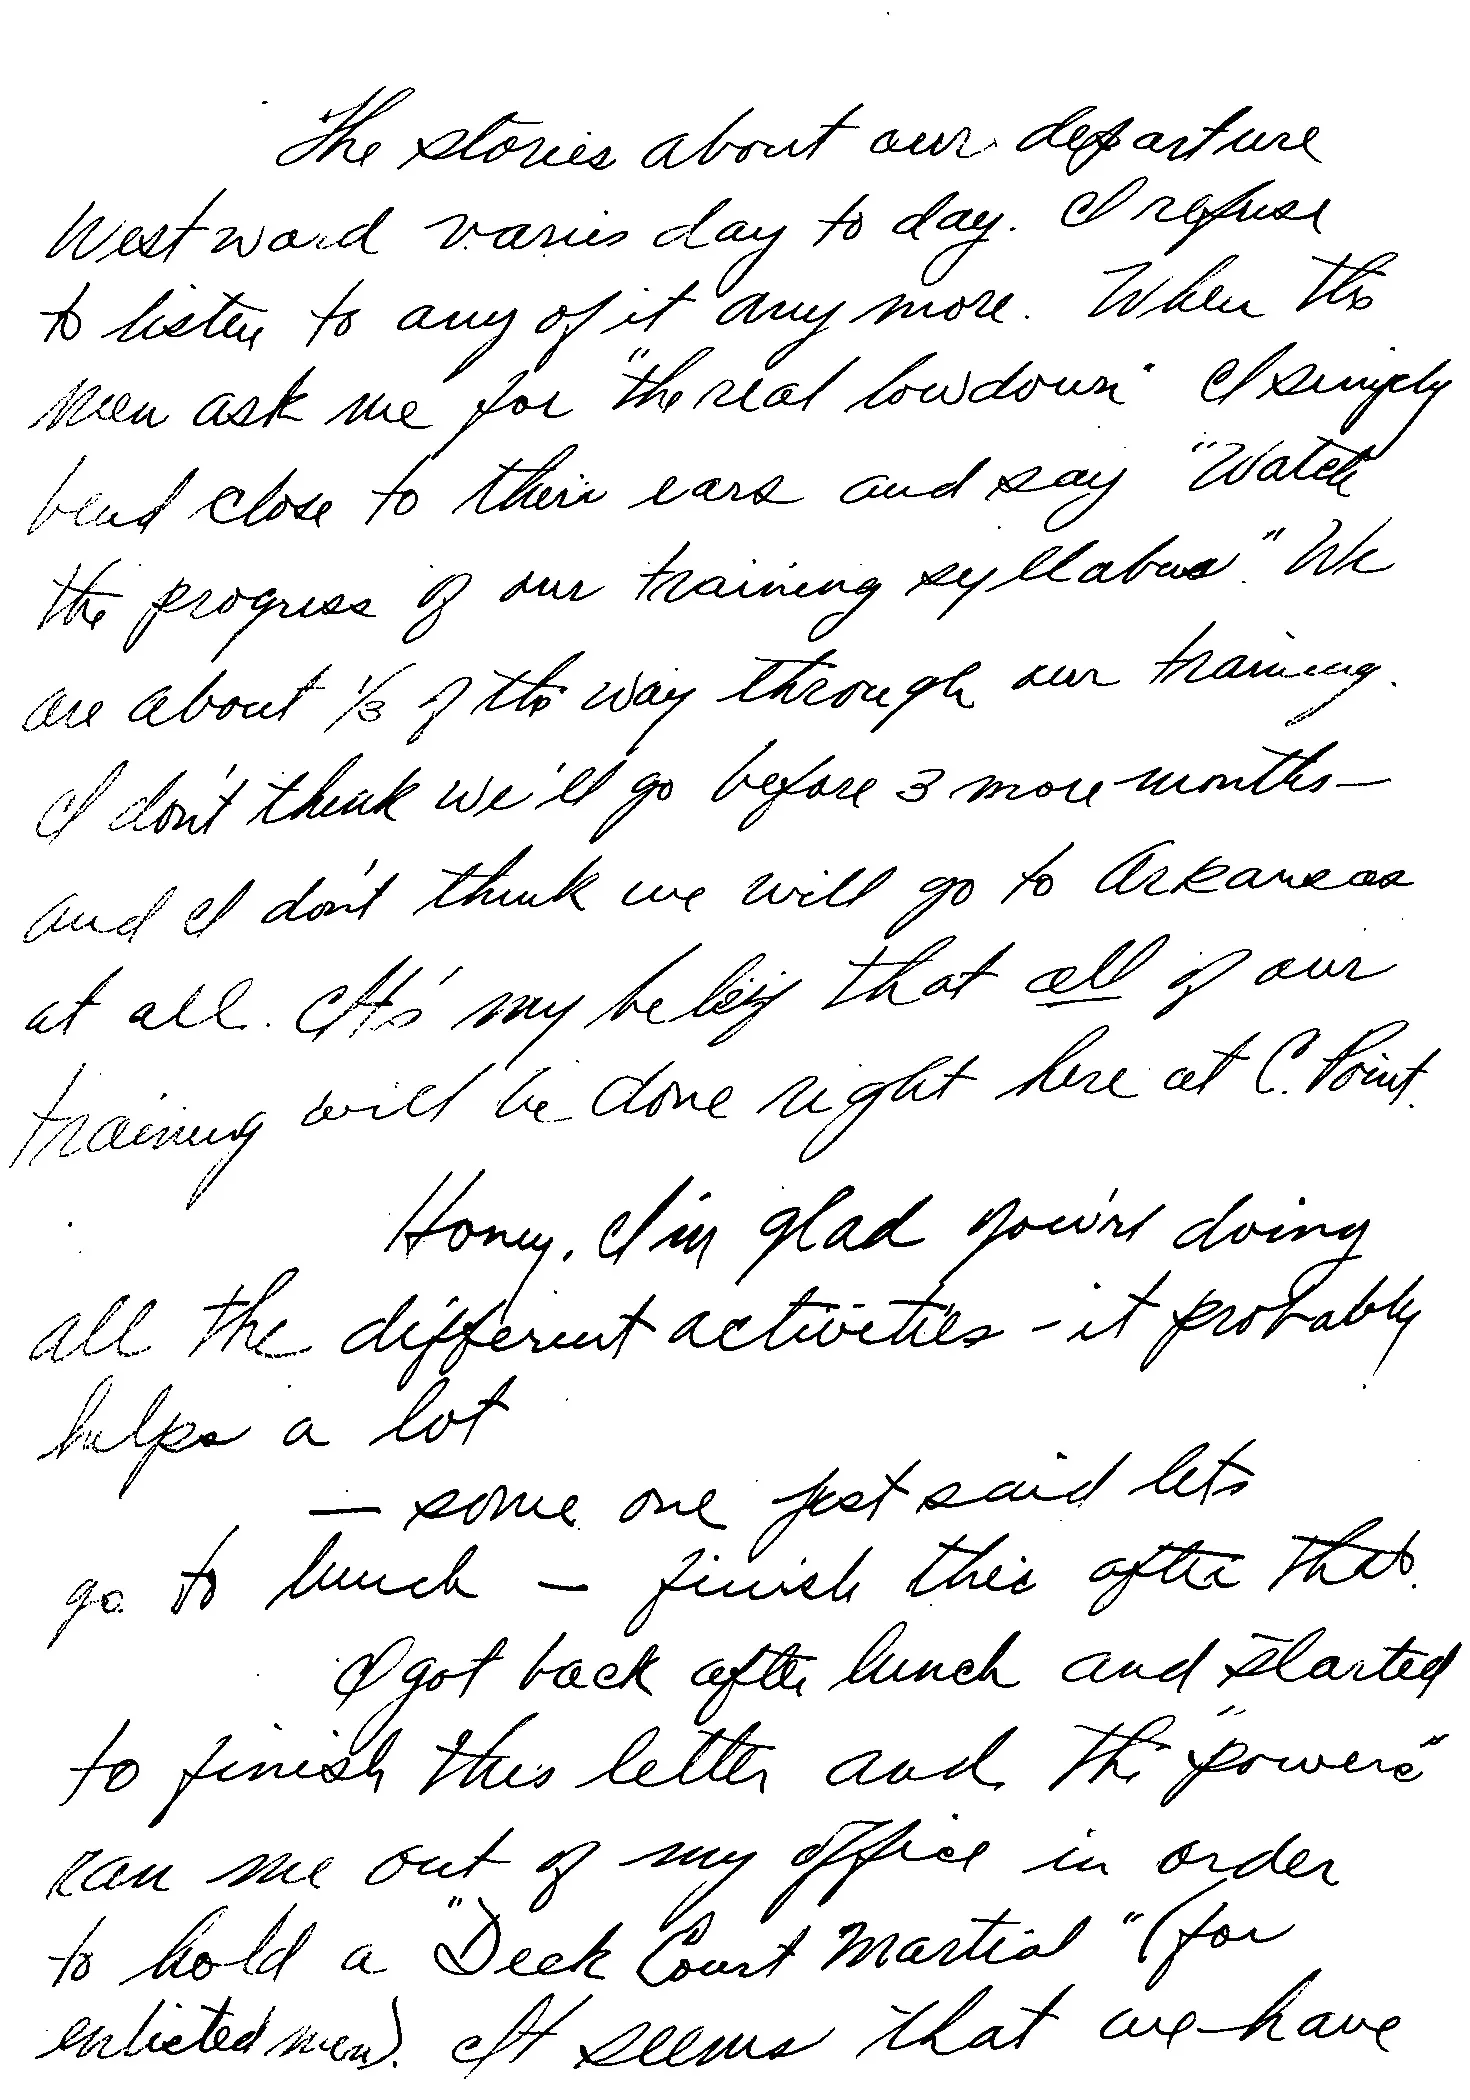 The stories about our departure
Westward varies day to day. I refuse
to listen to any of it any more. When the
men ask me for "the real lowdown" I simply
bend close to their ears and say "Watch
the progress of our training syllabus". We
are about 1/3 of the way through our training.
I don't think we'll go before 3 more months—
and I don't think we will go to Arkansas
at all. It's my belief that all of our
training will be done right here at C. Point.
Honey, I'm glad you're doing
all the different activities - it probably
helps a lot
— some one just said lets
go to lunch — finish this after that.
I got back after lunch and started
to finish this letter and the "powers"
ran me out of my office in order
to hold a "Deck Court Martial" (for
enlisted men). It seems that we have